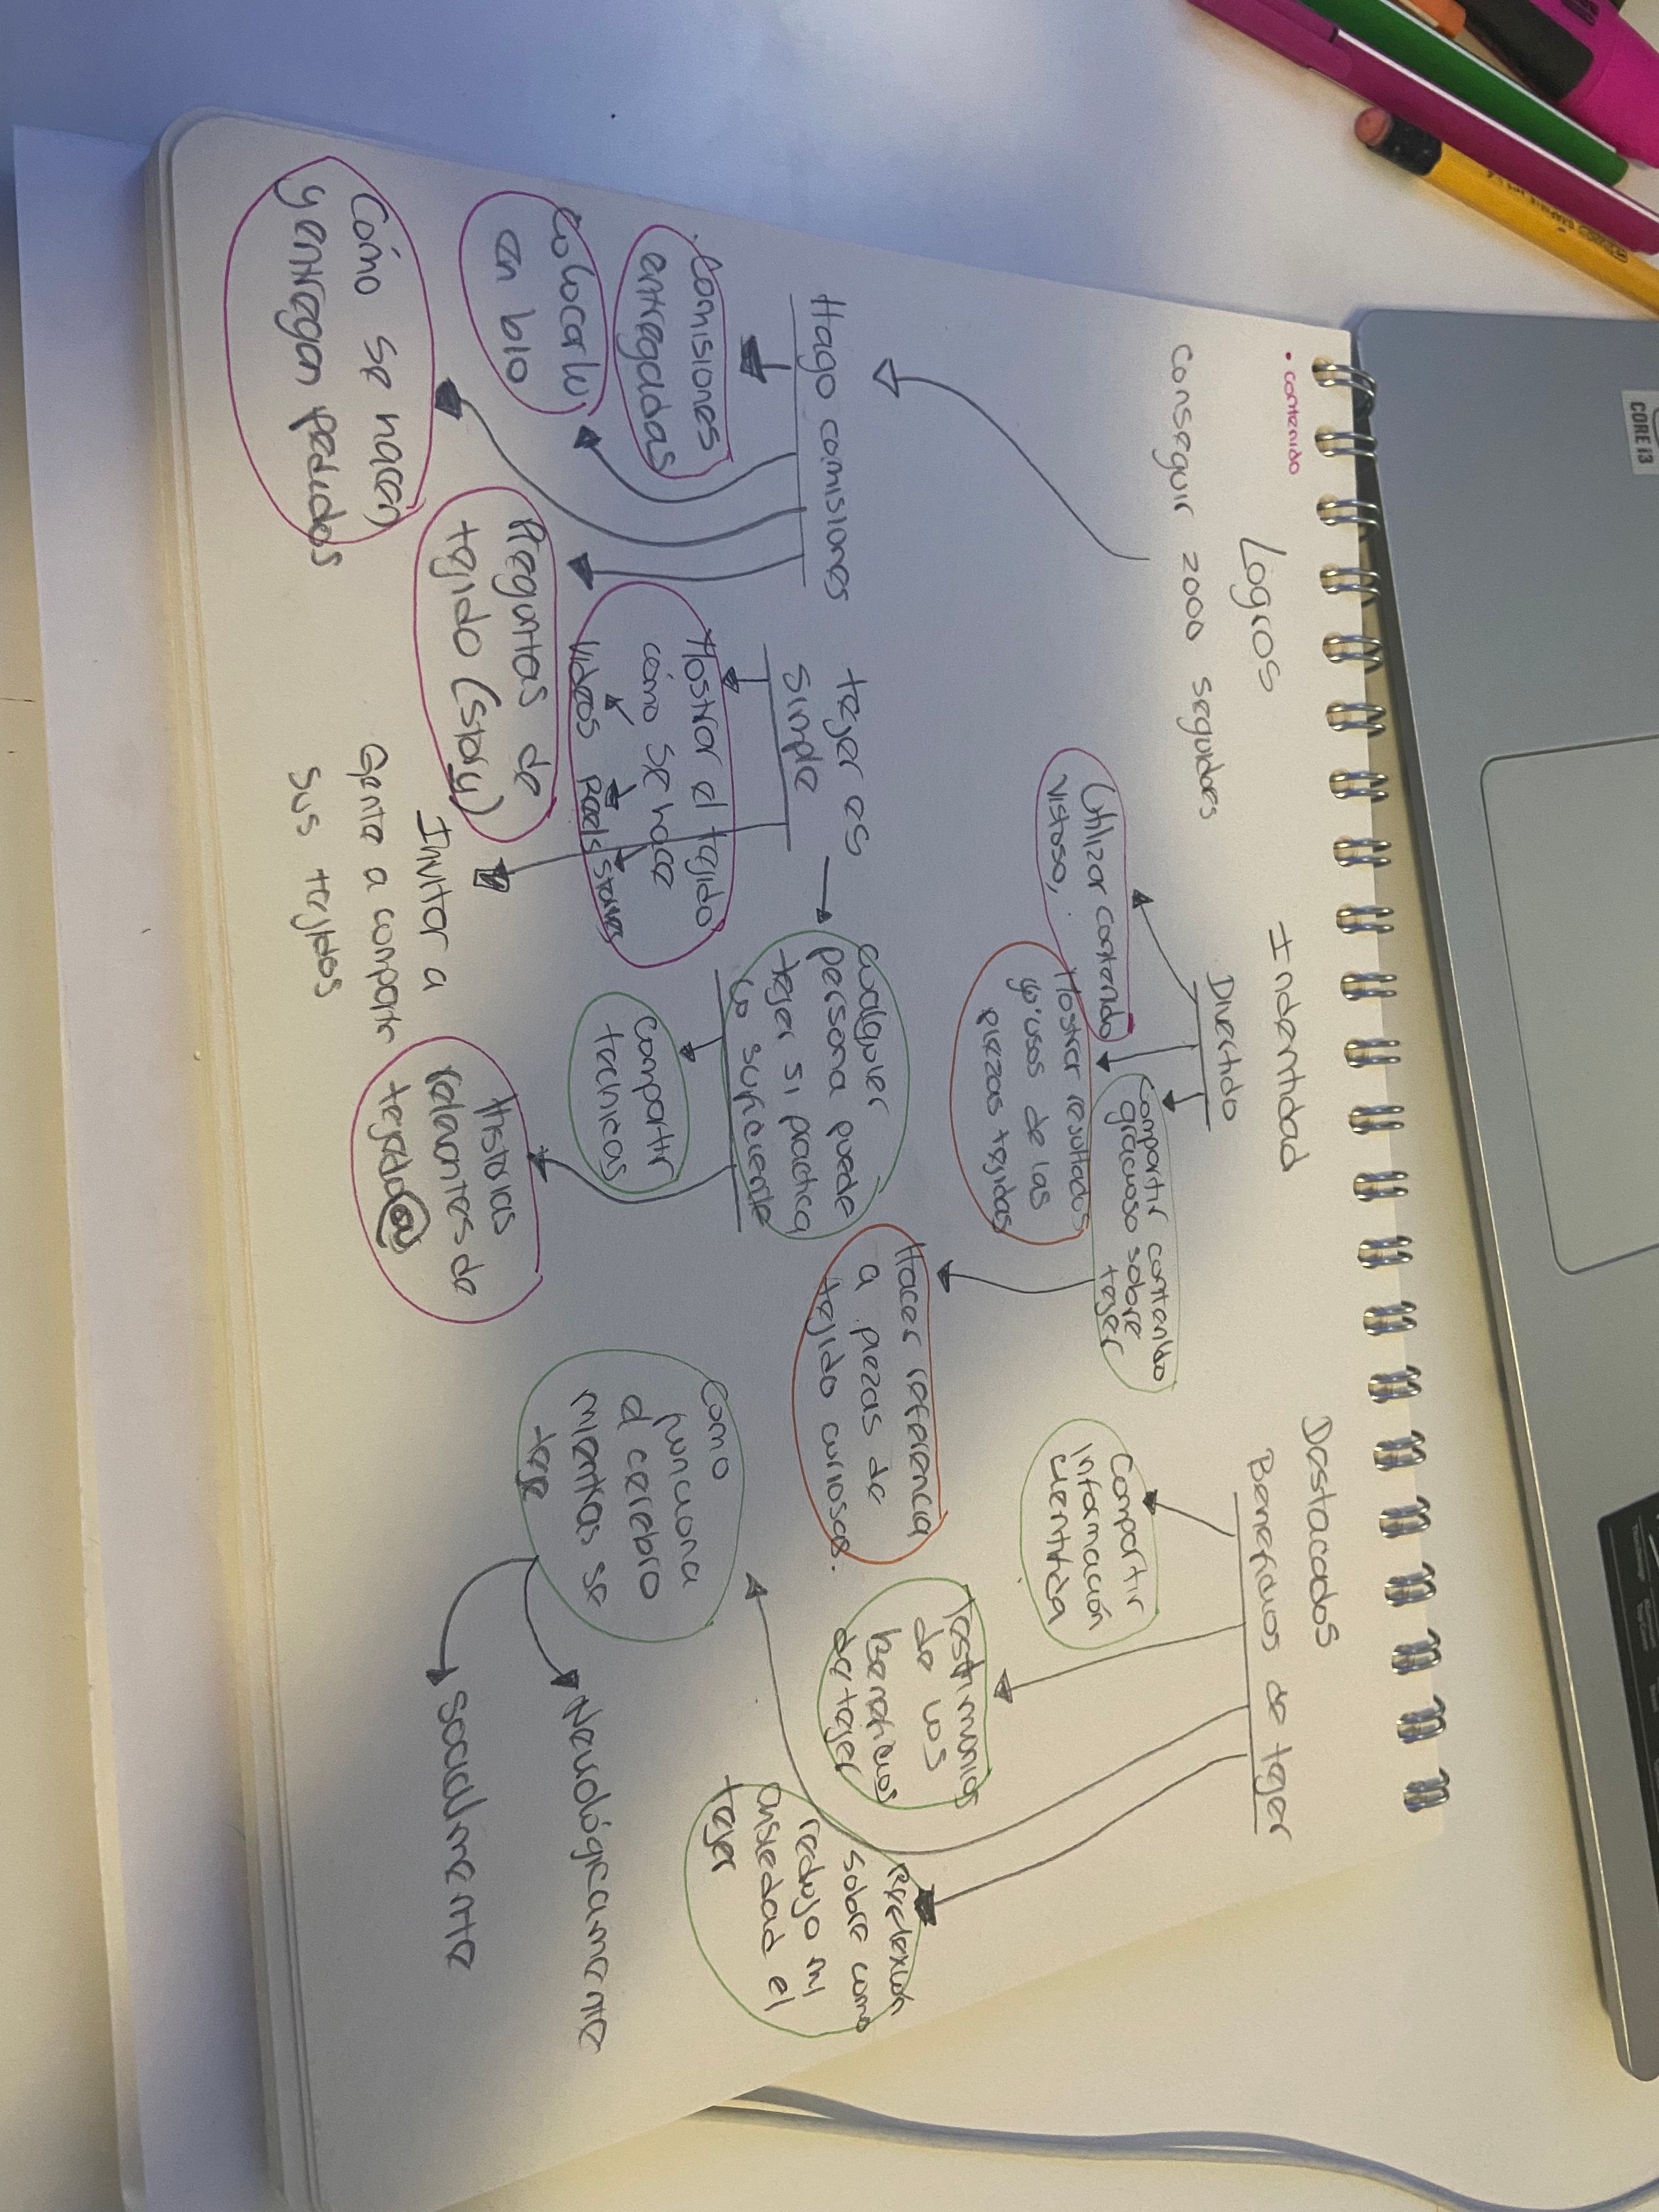 • contenido
Logros
Conseguir 2000 seguidores
Indentidad
Divertido
Utilizar contenido
vistoso,
Mostrar resultados
y/o usos de las
piezas tejidas
Compartir contenido
gracioso sobre
tejer
Hacer referencia
a piezas de
tejido curiosas.
Destacados
Beneficios de tejer
Compartir
información
cientifica
Testimonios
de los
Beneficios
de tejer
Reflexión
sobre como
redujo mi
ansiedad el
tejer
Como
funciona
el cerebro
mientras se
teje
Neurológicamente
Socialmente
Hago comisiones
Comisiones
entregadas
Colocarlo
en bio
Cómo se hacen
y entregan pedidos
Preguntas de
tejido (story)
tejer es
simple
Mostrar el tejido
cómo se hace
Videos Reels stories
Invitar a
Gente a compartir
sus tejidos
cualquier
persona puede
tejer si practica
lo suficiente
Compartir
tecnicas
Historias
relevantes de
tejedo@
CORE i3